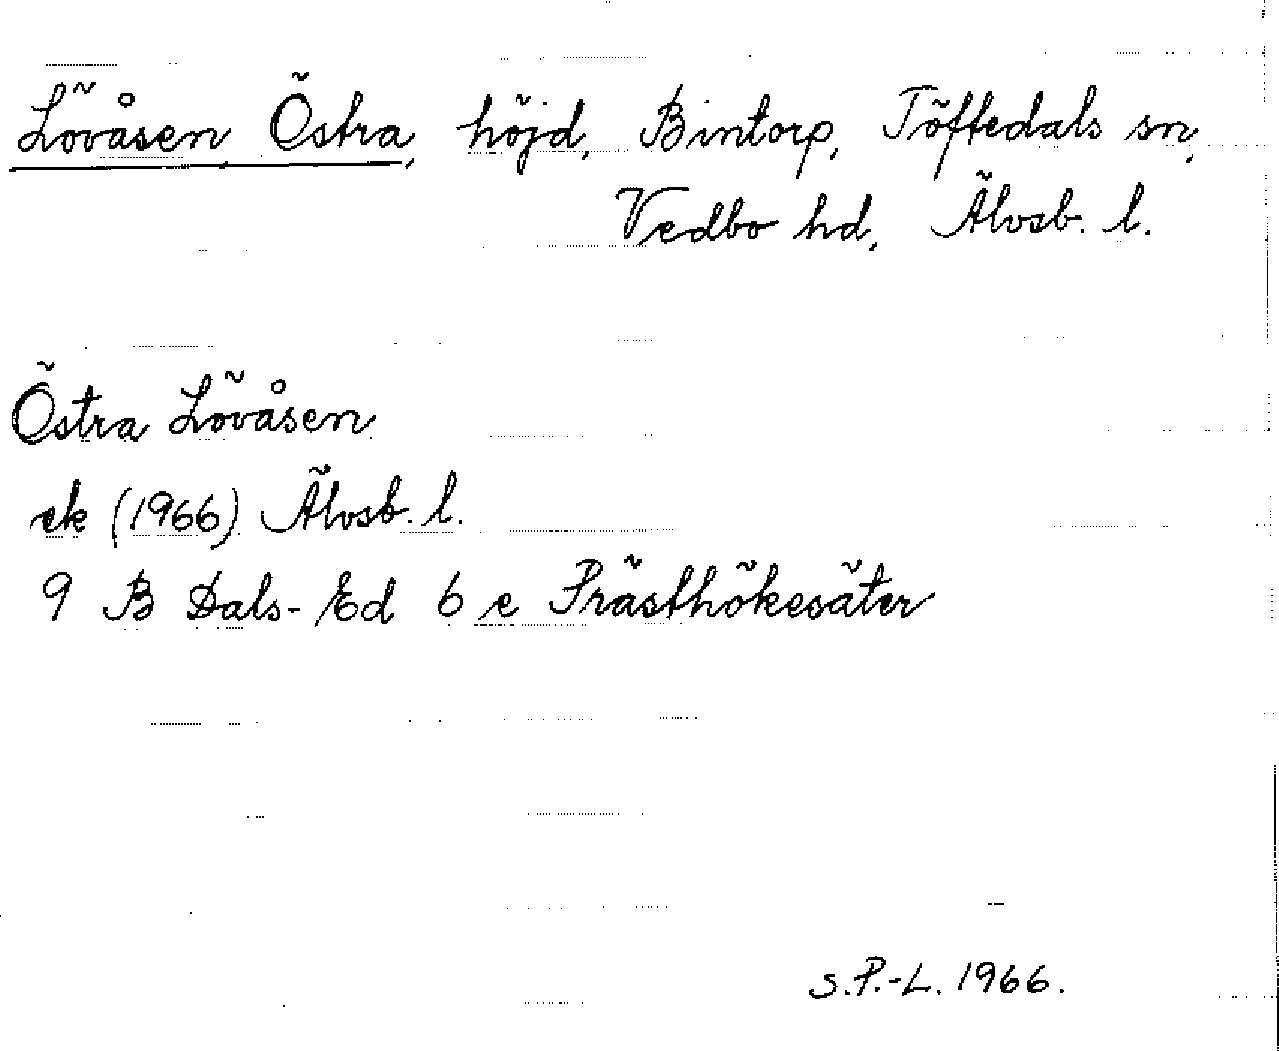 Lövåsen, Östra, höjd, Bintorp, Töftedals sn,
Vedbo hd, Älvsb. l.
Östra Lövåsen
ek (1966) Älvsb. l.
9 B Dals-Ed 6 e Prästhökesäter
S.P.-L. 1966.